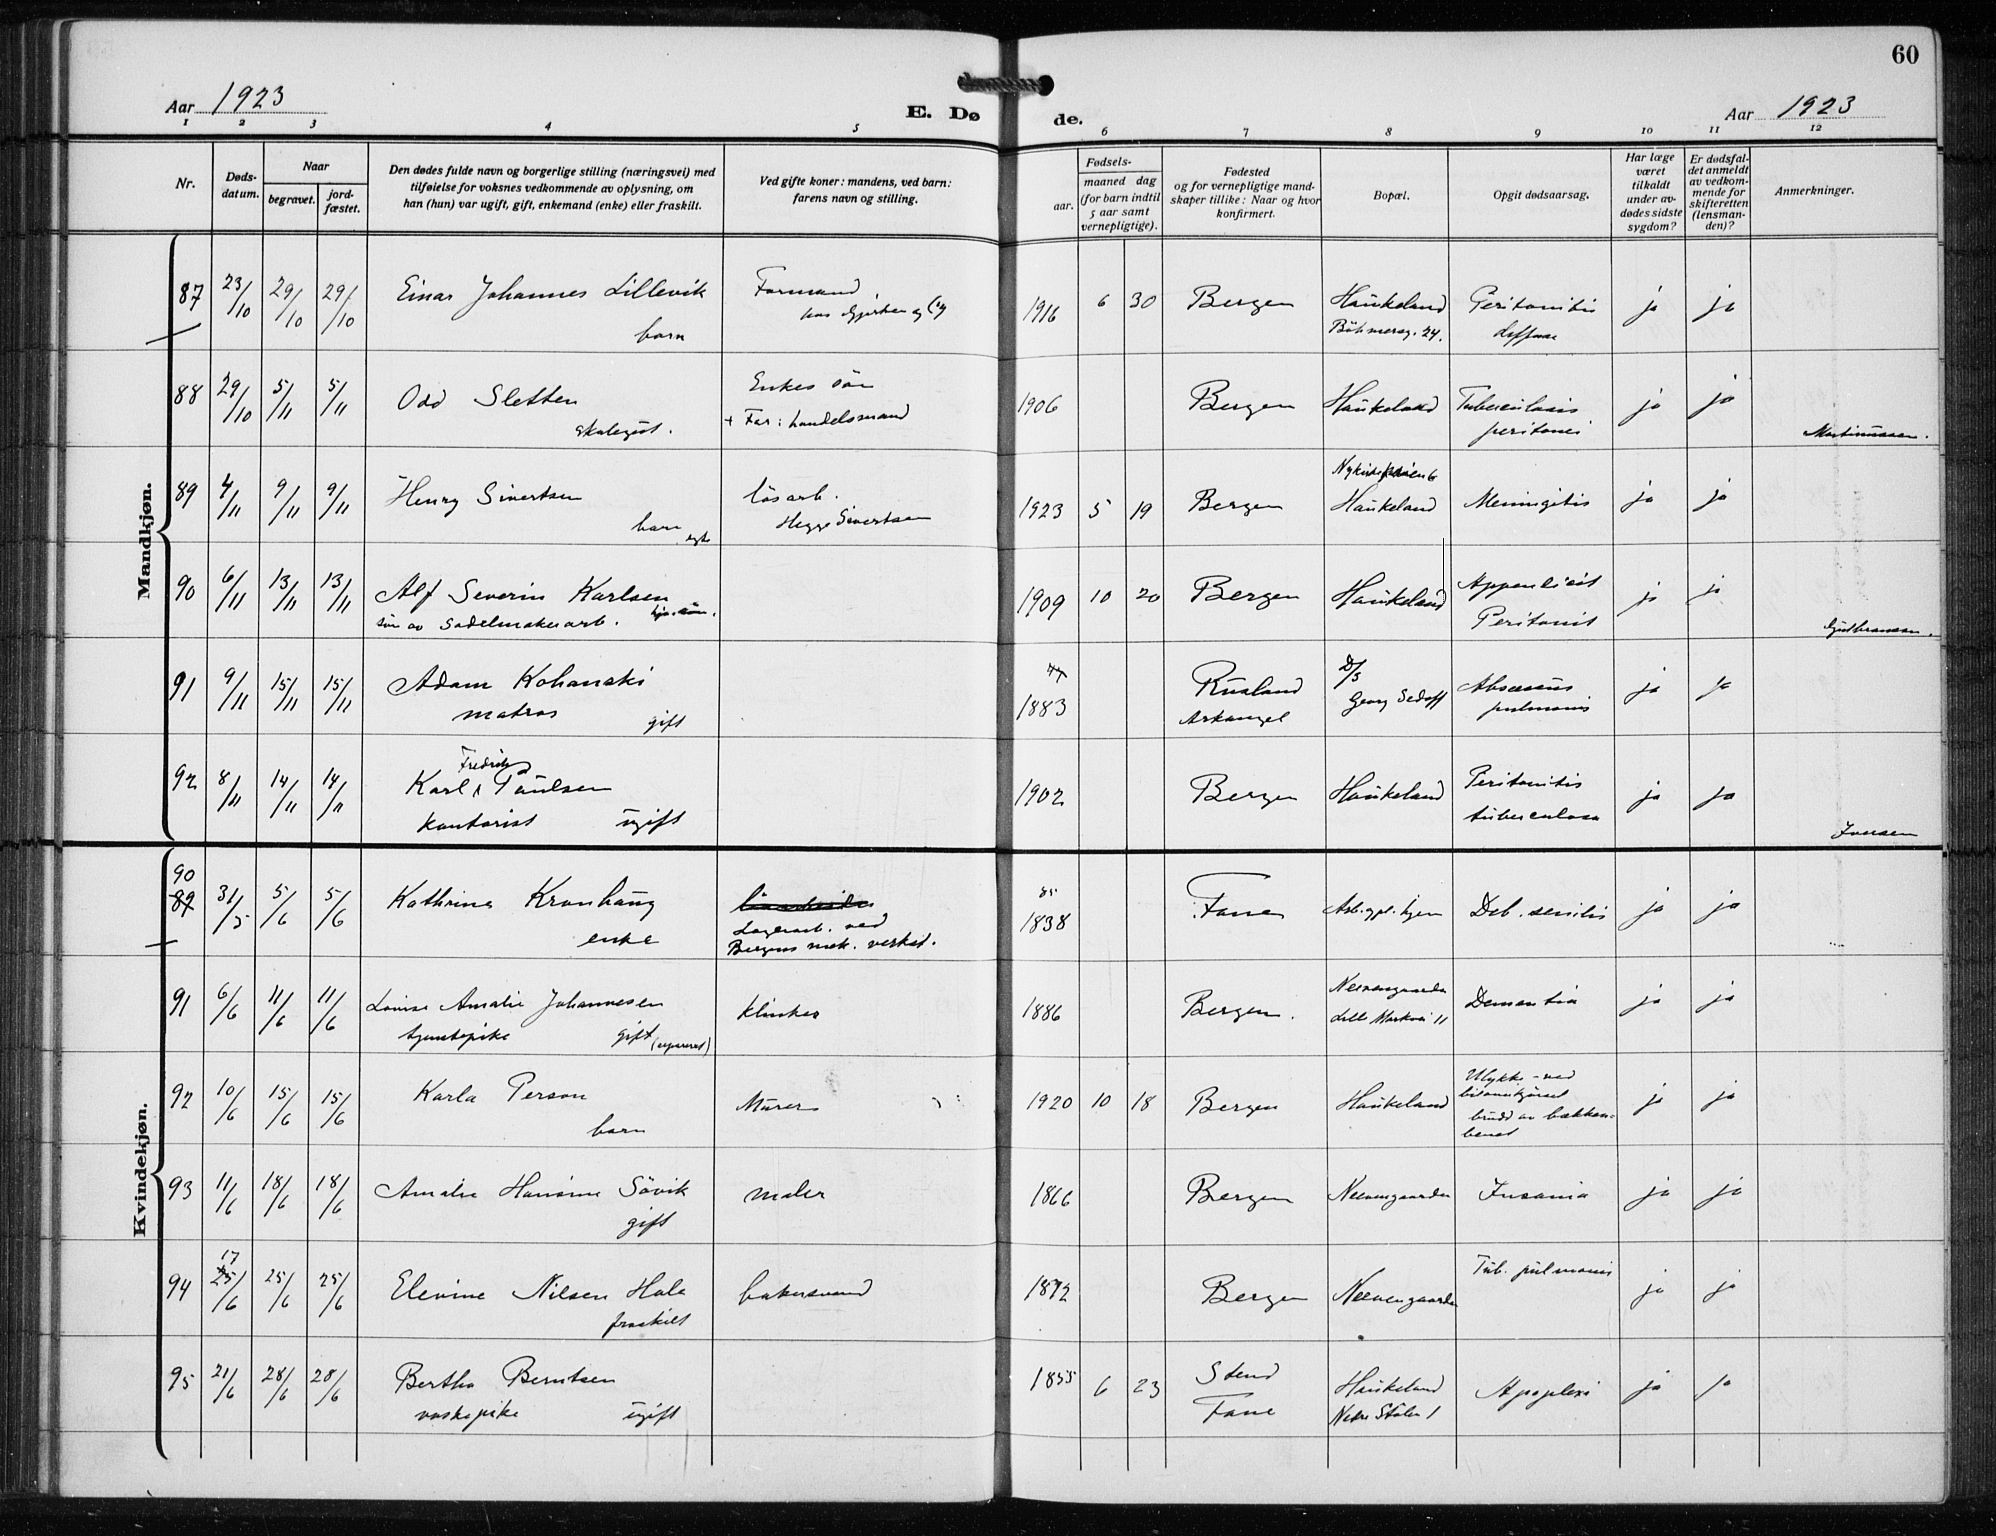 60
Aar 1923
E. Døde.
Aar 1923
1 2 3 4 5 6 7 8 9 10 11 12
Nr.
Døds-
datum.
Naar
begravet.
jord-
fæstet.
Den dødes fulde navn og borgerlige stilling (næringsvei) med
tilføielse for voksnes vedkommende av oplysning, om
han (hun) var ugift, gift, enkemand (enke) eller fraskilt.
Ved gifte koner: mandens, ved barn:
farens navn og stilling.
Fødsels-
aar.
maaned dag
(for barn indtil
5 aar samt
vernepligtige).
Fødested
og for vernepligtige mand-
skaper tillike: Naar og hvor
konfirmert.
Bopæl.
Opgit dødsaarsag.
Har læge
været
tilkaldt
under av-
dødes sidste
sygdom?
Er dødsfal-
det anmeldt
av vedkom-
mende for
skifteretten
(lensman-
den)?
Anmerkninger.
Mandkjøn.
87 23/10 29/10 29/10 Einar Johannes Lillevik Formand 1916 6 30 Bergen Haukeland Peritonitis ja ja
barn hos Böhmersg. 24.
88 29/10 5/11 5/11 Odd Sletten Enkes sön 1906 Bergen Haukeland Tuberculosis ja ja
skolegut. + Far: handelsmand peritonei Martinussen.
89 4/11 9/11 9/11 Henry Sivertsen lösarb. 1923 5 19 Bergen Haukeland Meningitis ja ja
barn Sivertsen
90 6/11 13/11 13/11 Alf Severin Karlsen 1909 10 20 Bergen Haukeland Appendicit ja ja
sön av Sadelmakerarb. Peritonit
91 9/11 15/11 15/11 Adam Kohanski 1883 Rusland D/S ja ja
matros gift Arkangel Georg Sedoff Abscessus pulmonis
92 8/11 14/11 14/11 Karl Fredrik Paulsen 1902 Bergen Haukeland Peritonitis ja ja
kontorist ugift tuberculosa Jonsen
Kvindekjøn.
90
89 31/5 5/6 5/6 Kathrine Kronhaug 85 1838 Fane Deb. senilis ja ja
enke Lagerarb. ved
Bergens mek. verksted.
91 6/6 11/6 11/6 Lovise Amalie Johannesen klinker 1886 Bergen. Neevengaarden Dementia ja ja
tjenestepike gift (separeret) Lille Markvei 11
92 10/6 15/6 15/6 Karla Person Murer 1920 10 18 Bergen Haukeland Ulykke - ved ja ja
barn brudd av bækken-
benet
93 11/6 18/6 18/6 Amalie Hansine Sövik maler 1866 Bergen Neevengaarden Insania ja ja
gift
17
94 25/6 25/6 25/6 Elevine Nilsen Hole bakersvend 1872 Bergen Neevengaarden Tub. pulmonis ja ja
fraskilt
95 21/6 28/6 28/6 Bertha Berntsen 1855 6 23 Stend Haukeland Apoplexi ja ja
vaskepike ugift Fane Nedre Stölen 1